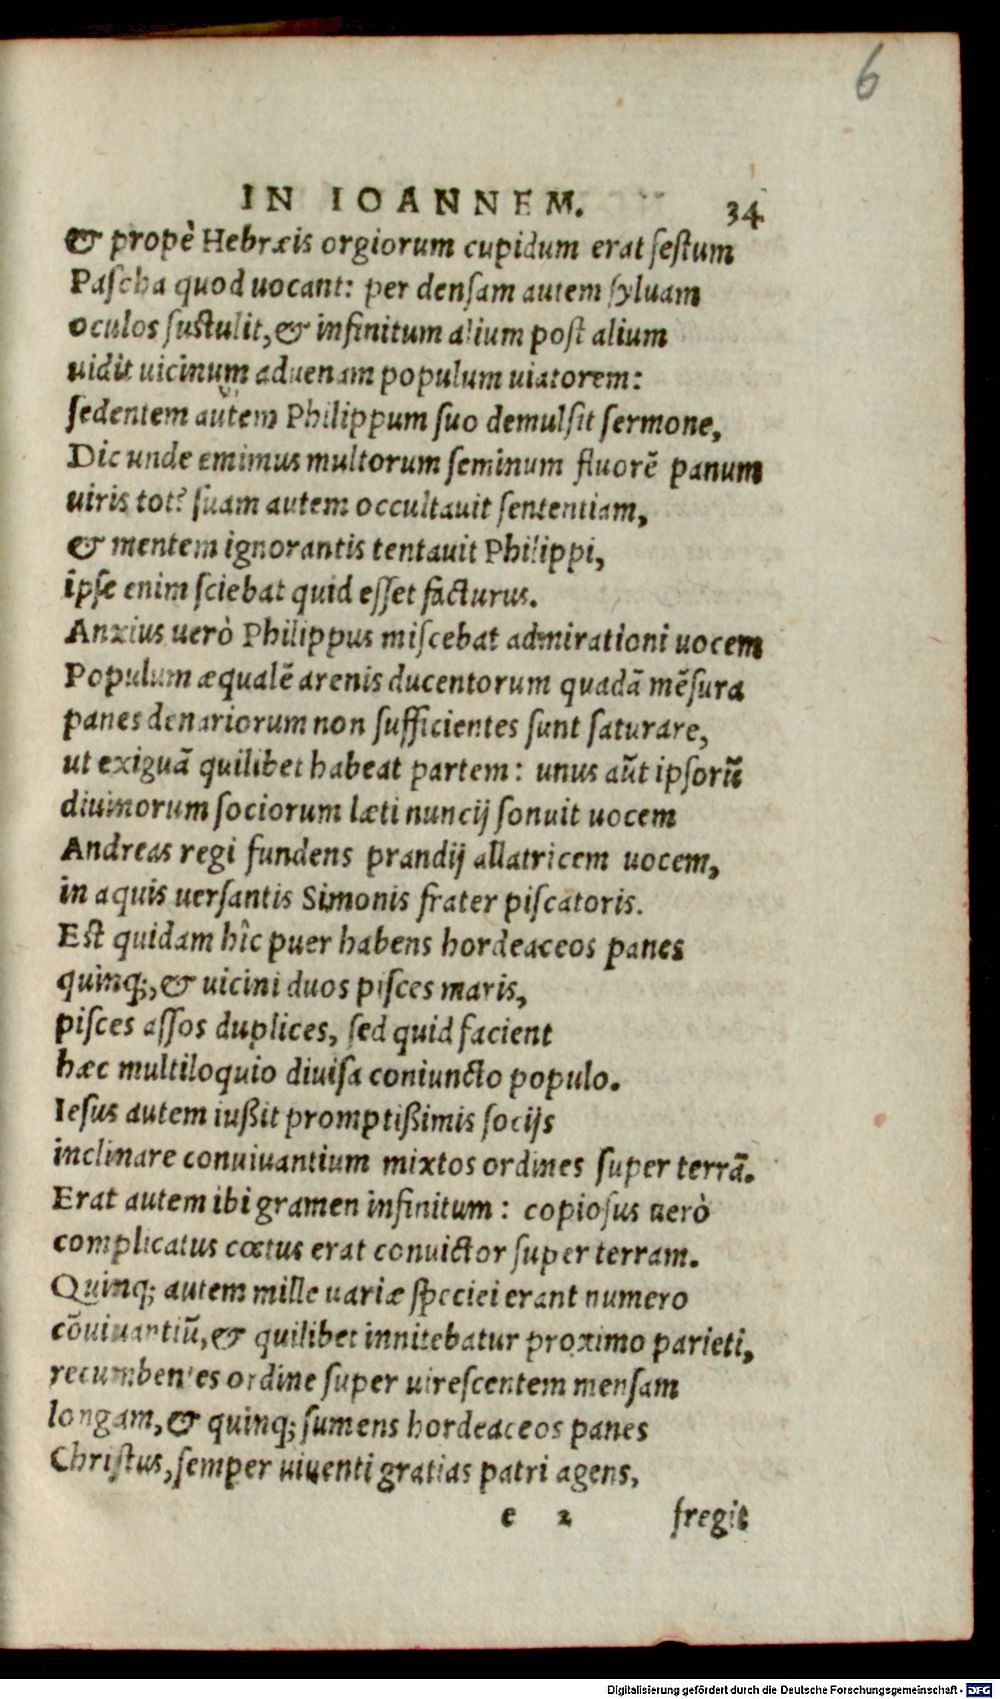 6
IN IOANNEM. 34
& propè Hebræis orgiorum cupidum erat festum
Pascha quod uocant: per densam autem syluam
oculos sustulit, & infinitum alium post alium
uidit uicinum aduenam populum uiatorem:
sedentem autem Philippum suo demulsit sermone,
Dic unde emimus multorum seminum fluorē panum
uiris tot? suam autem occultauit sententiam,
& mentem ignorantis tentauit Philippi,
ipse enim sciebat quid esset facturus.
Anxius uerò Philippus miscebat admirationi uocem
Populum æqualē arenis ducentorum quadā mēsura
panes denariorum non sufficientes sunt saturare,
ut exiguā quilibet habeat partem: unus aūt ipsorū
diuinorum sociorum læti nuncij sonuit uocem
Andreas regi fundens prandij allatricem uocem,
in aquis uersantis Simonis frater piscatoris.
Est quidam hîc puer habens hordeaceos panes
quinq;, & uicini duos pisces maris,
pisces assos duplices, sed quid facient
hæc multiloquio diuisa coniuncto populo.
Iesus autem iußit promptißimis socijs
inclinare conuiuantium mixtos ordines super terrā.
Erat autem ibi gramen infinitum: copiosus uerò
complicatus cœtus erat conuictor super terram.
Quinq; autem mille uariæ speciei erant numero
cōuiuantiū, & quilibet innitebatur proximo parieti,
recumbentes ordine super uirescentem mensam
longam, & quinq; sumens hordeaceos panes
Christus, semper uiuenti gratias patri agens,
e 2 fregit
Digitalisierung gefördert durch die Deutsche Forschungsgemeinschaft - DFG